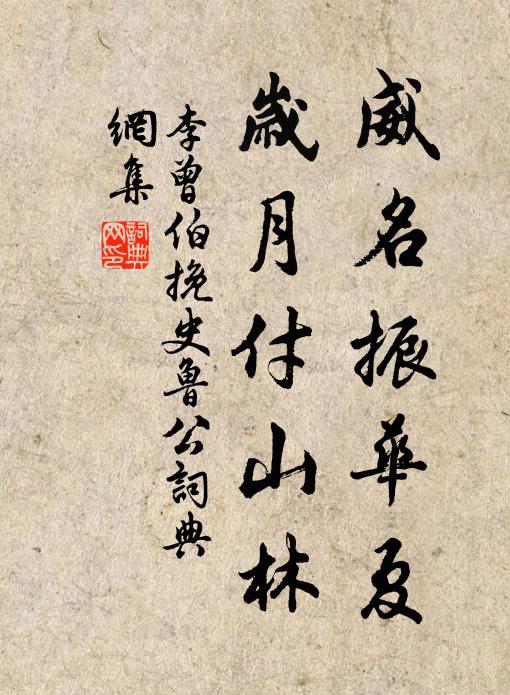 威名振華夏
歲月付山林
李曾伯挽史魯公詞典
網集
詞典
网印